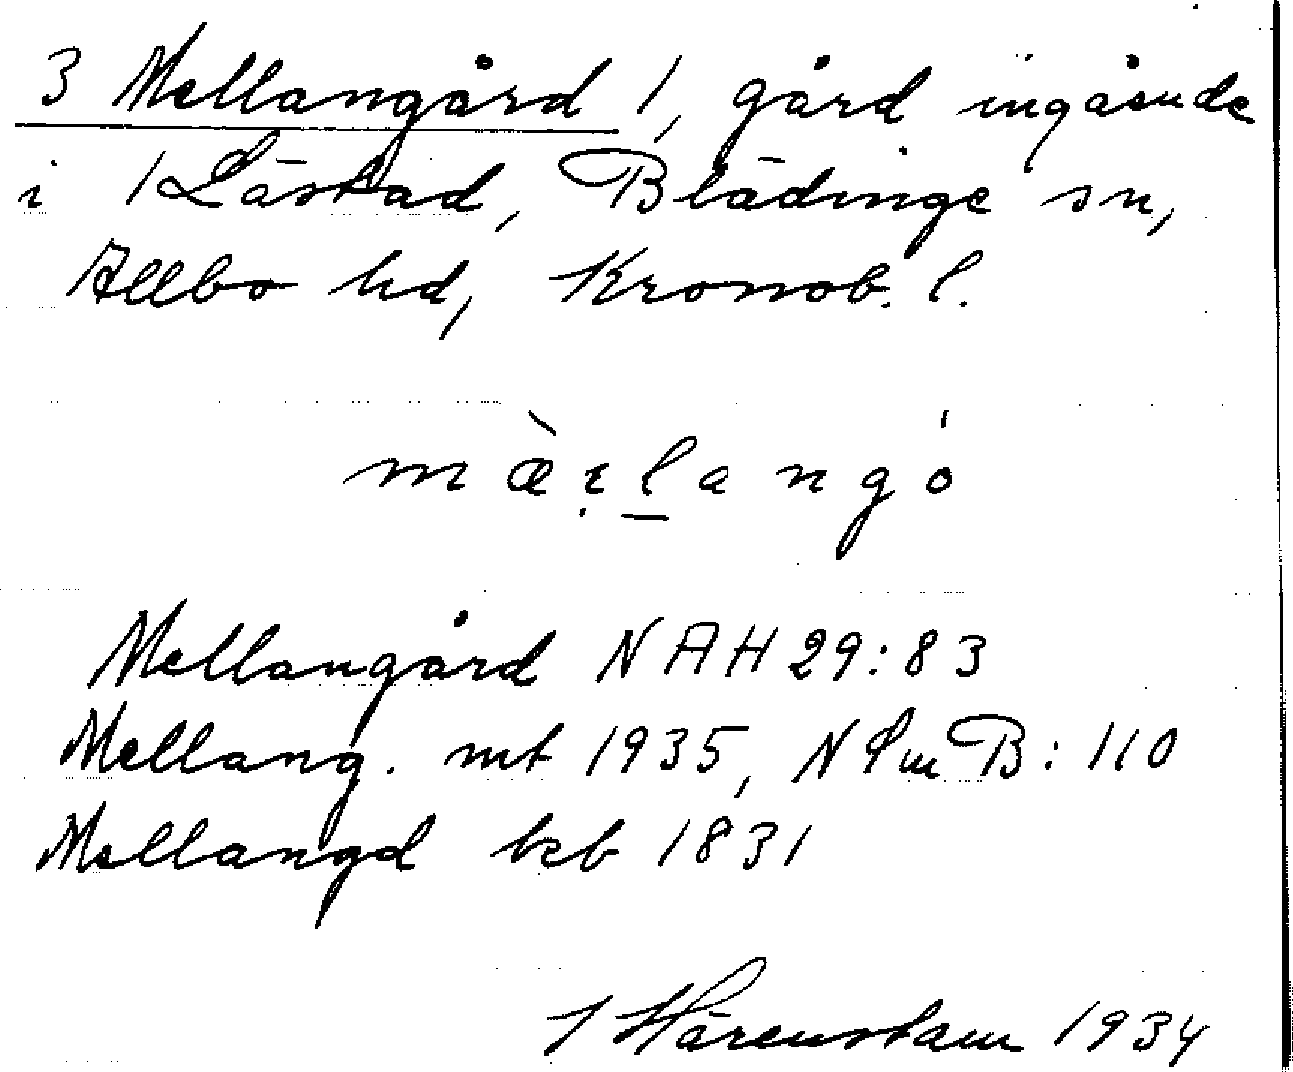 3 Mellangård 1, gård ingående
i 1 Låstad, Blädinge sn,
Allbo hd, Kronob. l.
màꞅlangó
Mellangård NAH 29:83
Mellang. mt 1935, N Smm B: 110
Mellangd kb 1831
Härenstam 1934